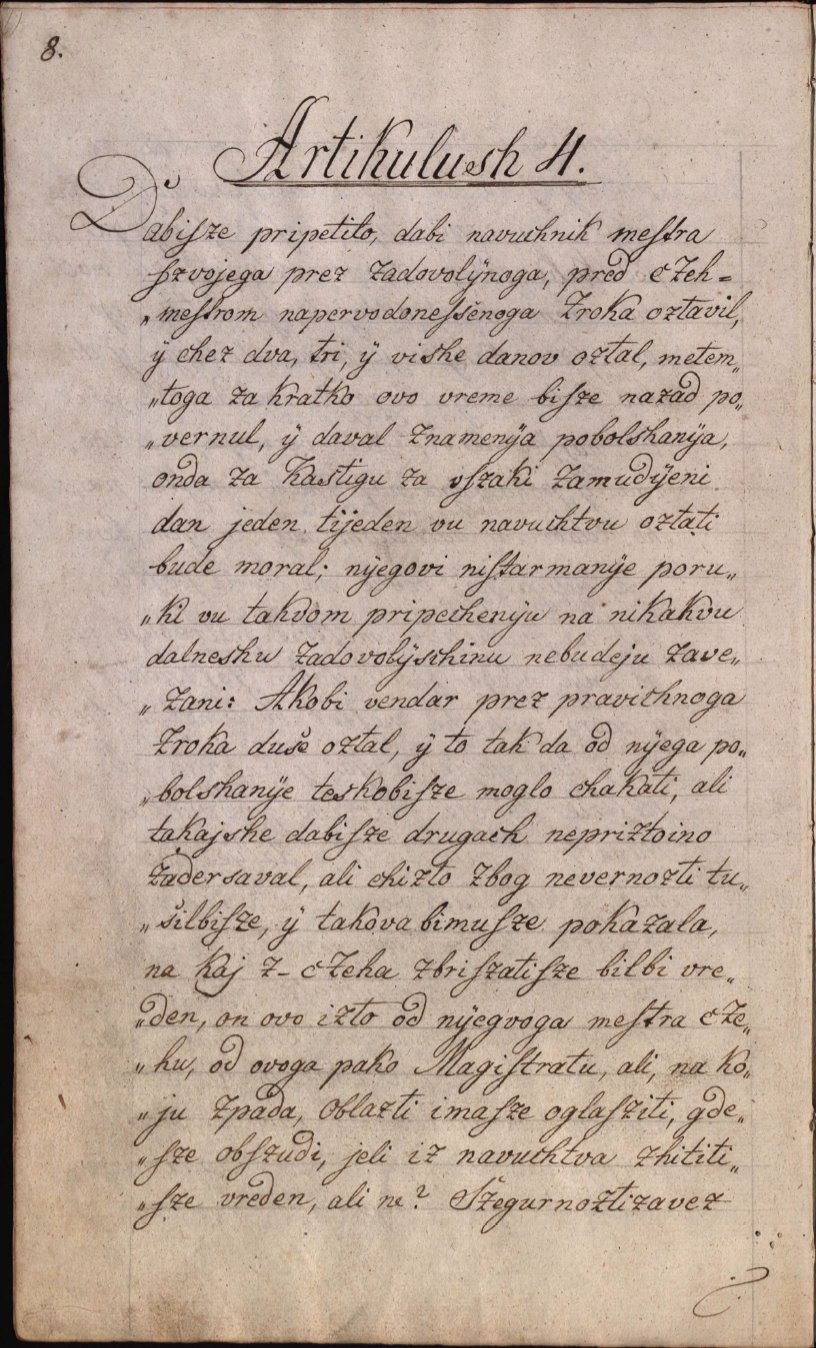 8.
Artikulush 4.
Dabiſze pripetilo, dabi navuchnik meſtra
ſzvojega prez zadovolÿnoga, pred cZeh=
„meſtrom napervodoneſšenoga zroka oztavil,
ÿ chez dva, tri, ÿ vishe danov oztal, metem„
„toga za kratko ovo vreme biſze nazad po„
„vernul, ÿ daval znamenÿa pobolshanÿa,
onda za Kastigu za vſzaki zamudÿeni
dan jeden tÿeden vu navuchtvu oztati
bude moral; nÿegovi niſtarmanÿe poru„
„ki vu takvom pripecheniju na nikakvu
dalneshu zadovolÿschinu nebudeju zave„
„zani: Akobi vendar prez pravichnoga
zroka duše oztal, ÿ to tak da od nÿega po„
„bolshanÿe teskobiſze moglo chakati, ali
takajshe dabiſze drugach nepriztoino
zadersaval, ali chizto zbog nevernozti tu„
„šilbiſze, ÿ takova bimuſze pokazala,
na kaj z- cZeha zbriſzatiſze bilbi vre„
„den, on ovo izto od nÿegvoga meſtra cZe„
„hu, od ovoga pako Magiſtratu, ali, na ko„
„ju zpada, Oblazti imaſze oglaſziti, gde„
„ſze obſzudi, jeli iz navuchtva zhititi„
„ſze vreden, ali ne? Szegurnoztizavez